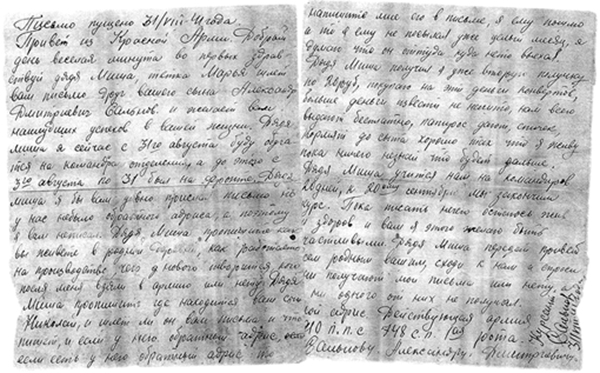 Письмо пущено 31/VIII-41 года.
Привет из Красной Армии. Добрый
день веселая минута во первых здрав-
ствуй дядя Миша, тетка Марья шлет
вам письмо друг вашего сына Александр
Дмитриевич Сальнов. и желает вам
наилучших успехов в вашей жизни. Дядя
Миша я сейчас с 31го августа буду обуча
тся на командира отделения, а до этого с
3го августа по 31 был на фронте. Дядя
Миша я бы вам давно прислал письмо но
у нас небыло обратного адреса, а поэтому
я вам неписал. Дядя Миша пропишите как
вы живете в родной деревне, как работаете
на производстве чего у нового творится кого
после меня взяли в армию или нету. Дядя
Миша пропишите где находится ваш сын
Николай, и шлет ли он вам письма и что
пишет, и если у него обратный адрес, если
если есть у него обратный адрес то
напишите мне его в письме, я ему пошлю
а то я ему не посылал уже целый месяц, я
думаю что он оттуда куда нето выехал.
Дядя Миша получил я уже вторую получку
по 10 руб, покупаю на эти деньги конвертов,
больше деньги извести не на что, нам всего
выдают бесплатно, папирос дают, спичек,
кормят до сыта хорошо так что я живу
пока ничего незнай что будет дальше.
Дядя Миша учится нам на командиров
20 дней, к 20му сентября мы закончим
курс. Пока писать нечего остаюсь жив
и здоров и вам я этого желаю быть
счастливыми. Дядя Миша передай привет
всем родным вашим, сходи к нам и спроси
они получают мои письма или нету. я
ни одного от них не получал.
мой адрес. Действующая армия
п.п.с 748 с.п. 1ая рота.
Сальнову Александру Дмитриевичу.